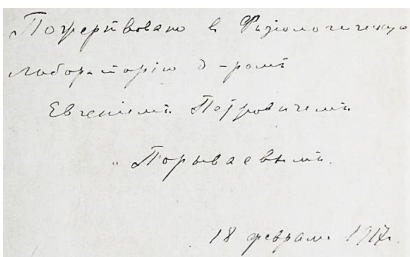 Пожертвовано в Физіологическую
лабораторію д-ромъ
Евгеніемъ Петровичемъ
Порываевымъ.
18 февраля 1917 г.